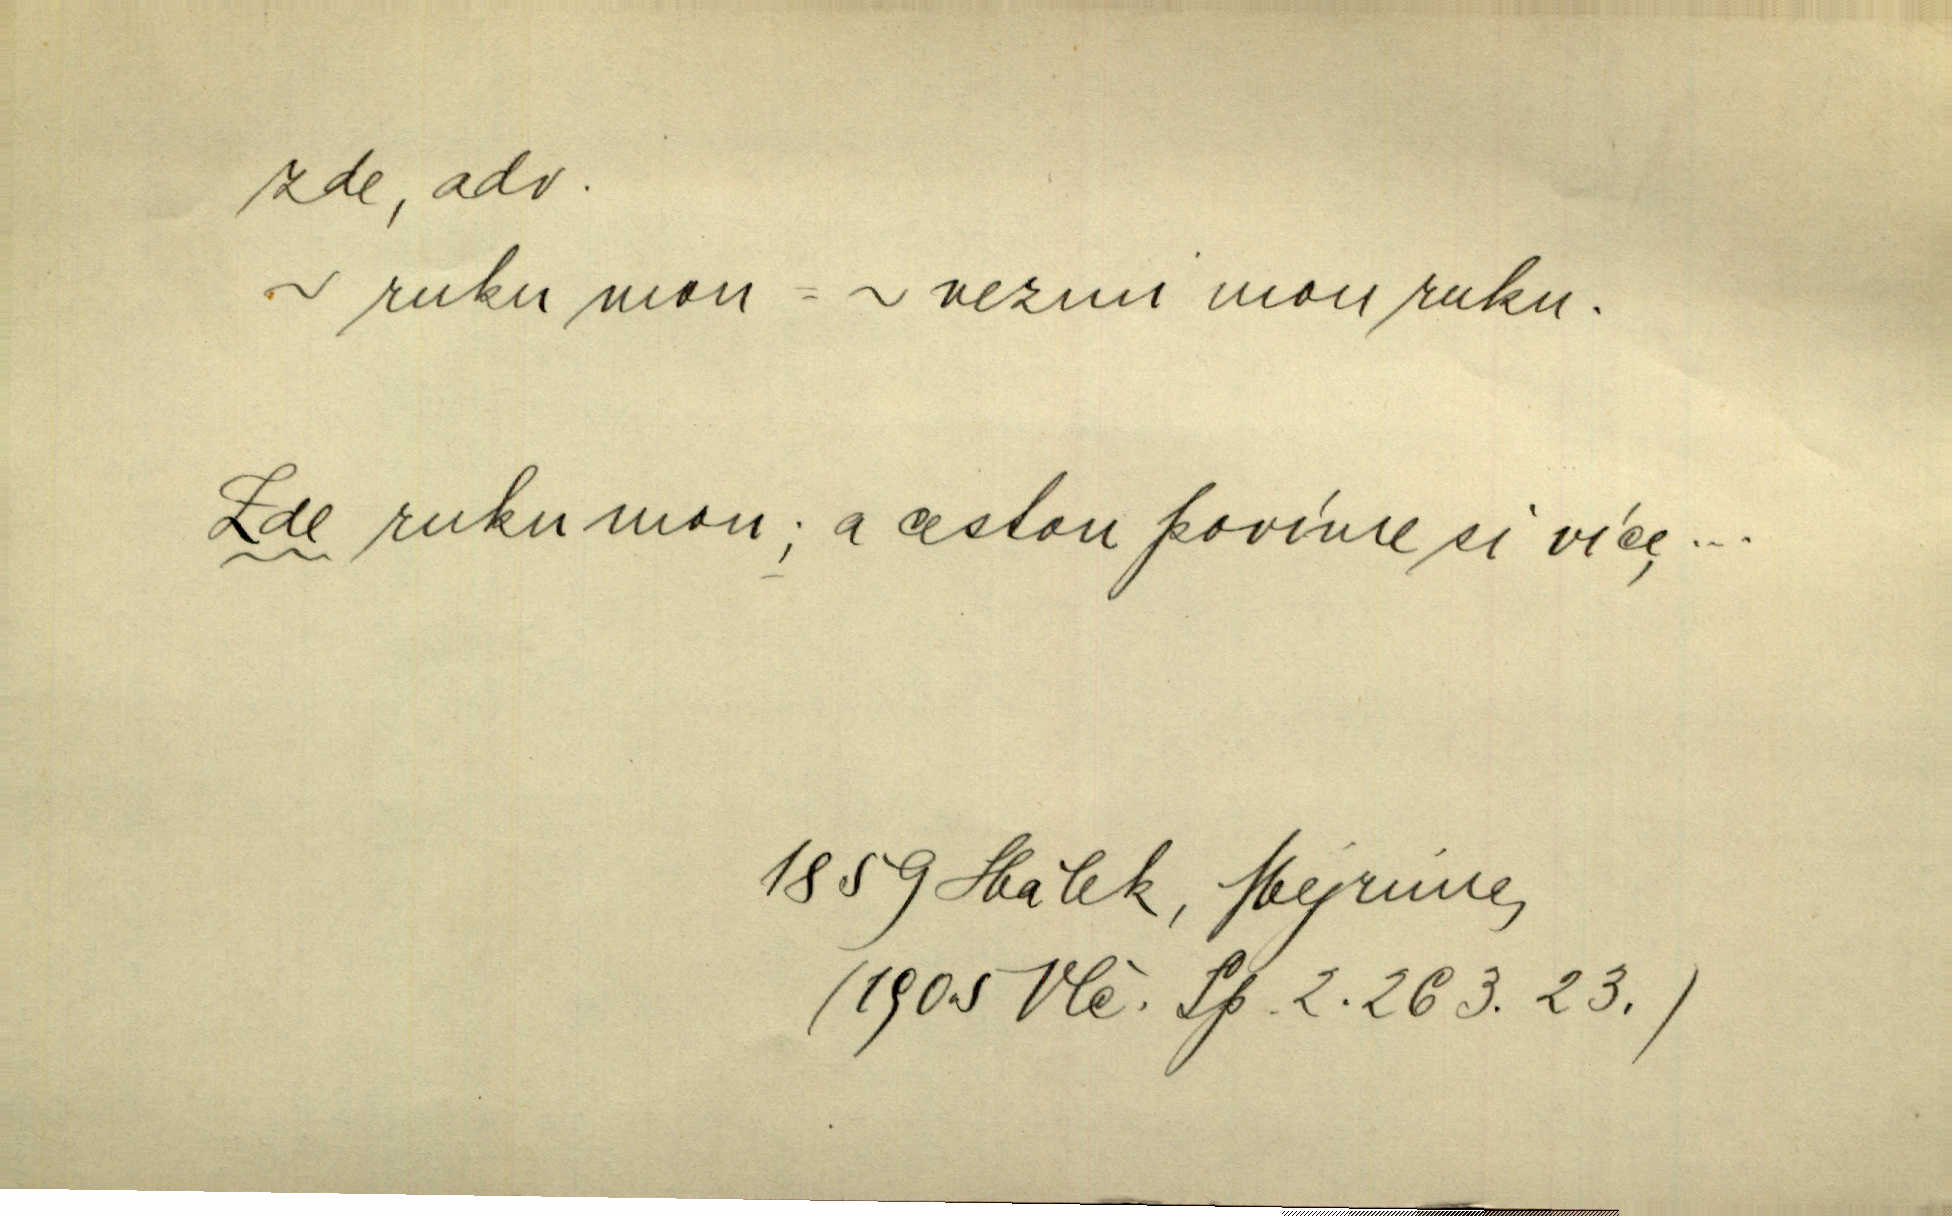 zde, adv.
~ ruku mou = ~ vezmi mou ruku.
Zde ruku mou; a cestou povíme si více, ...
1859 Hálek, Mejrima,
(1905 Vlč. Sp. 2. 263. 23.)